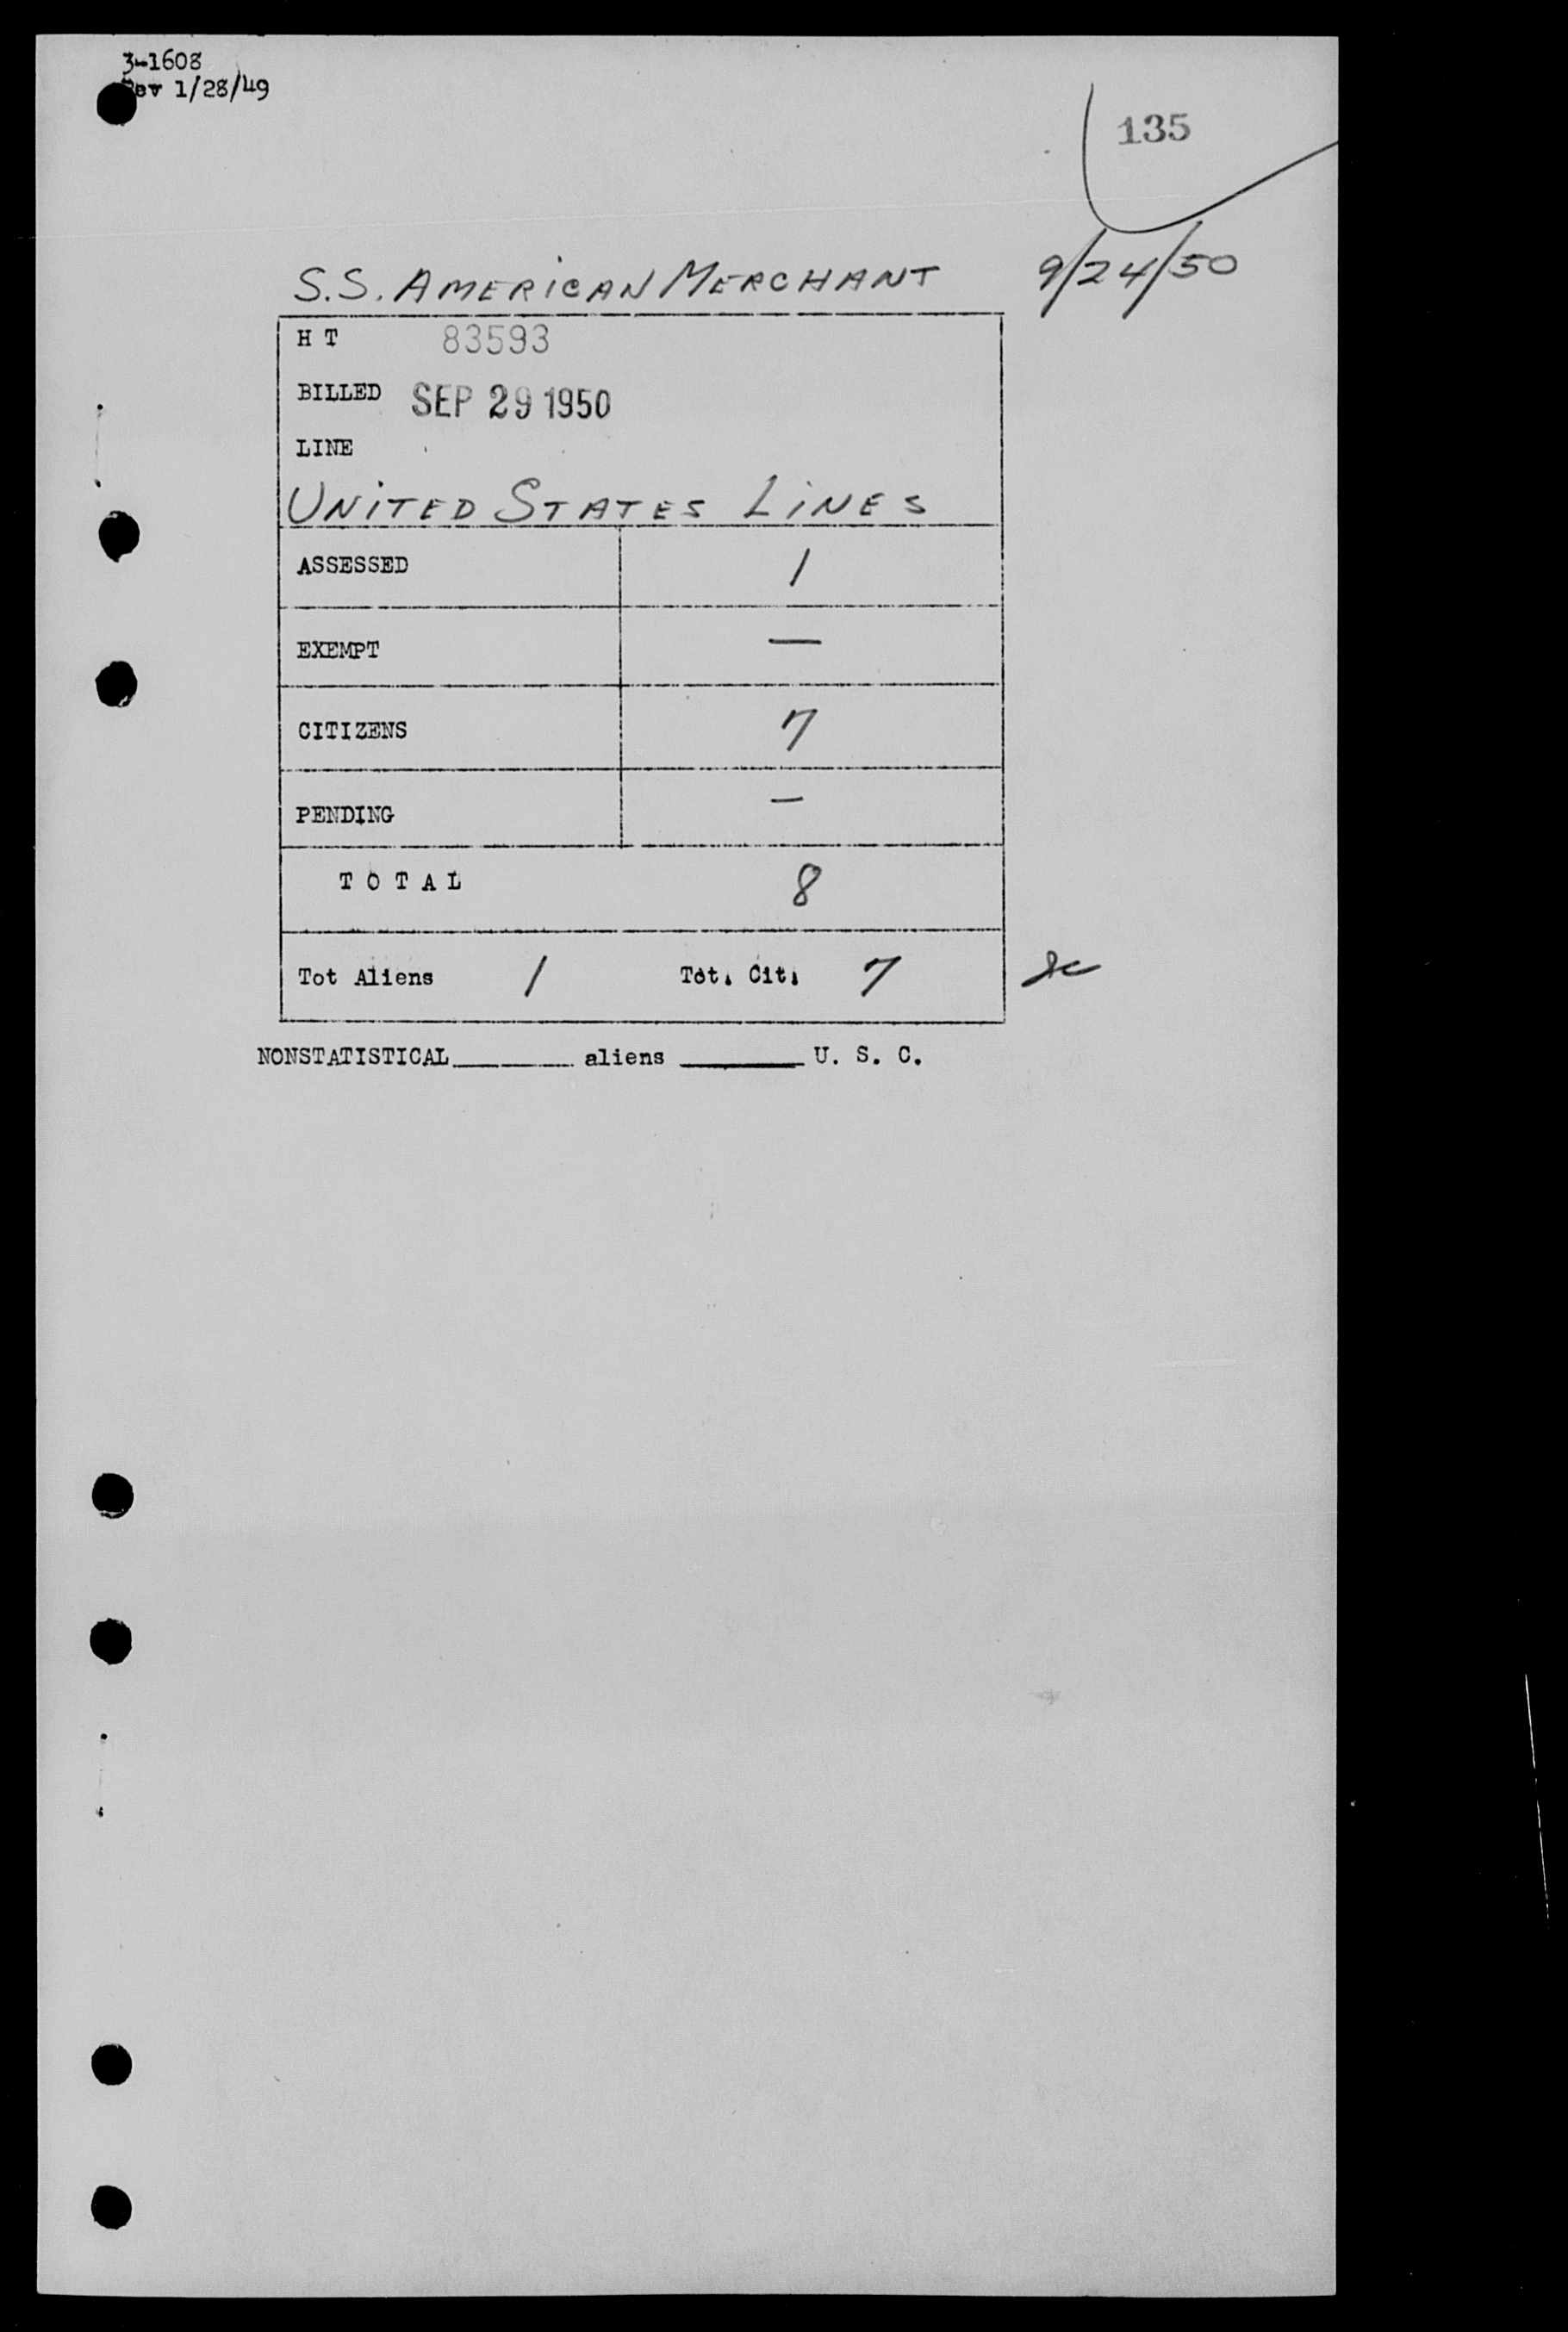 3-1608
Rev 1/28/49
135
S.S. AMERICAN MERCHANT 9/24/50
H T 83593
BILLED SEP 29 1950
LINE
UNITED STATES LINES
ASSESSED 1
EXEMPT —
CITIZENS 7
PENDING —
TOTAL 8
Tot Aliens 1 Tot. Cit. 7
NONSTATISTICAL______ aliens ______ U. S. C.